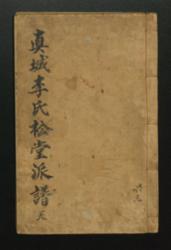 真城李氏松堂派譜 天